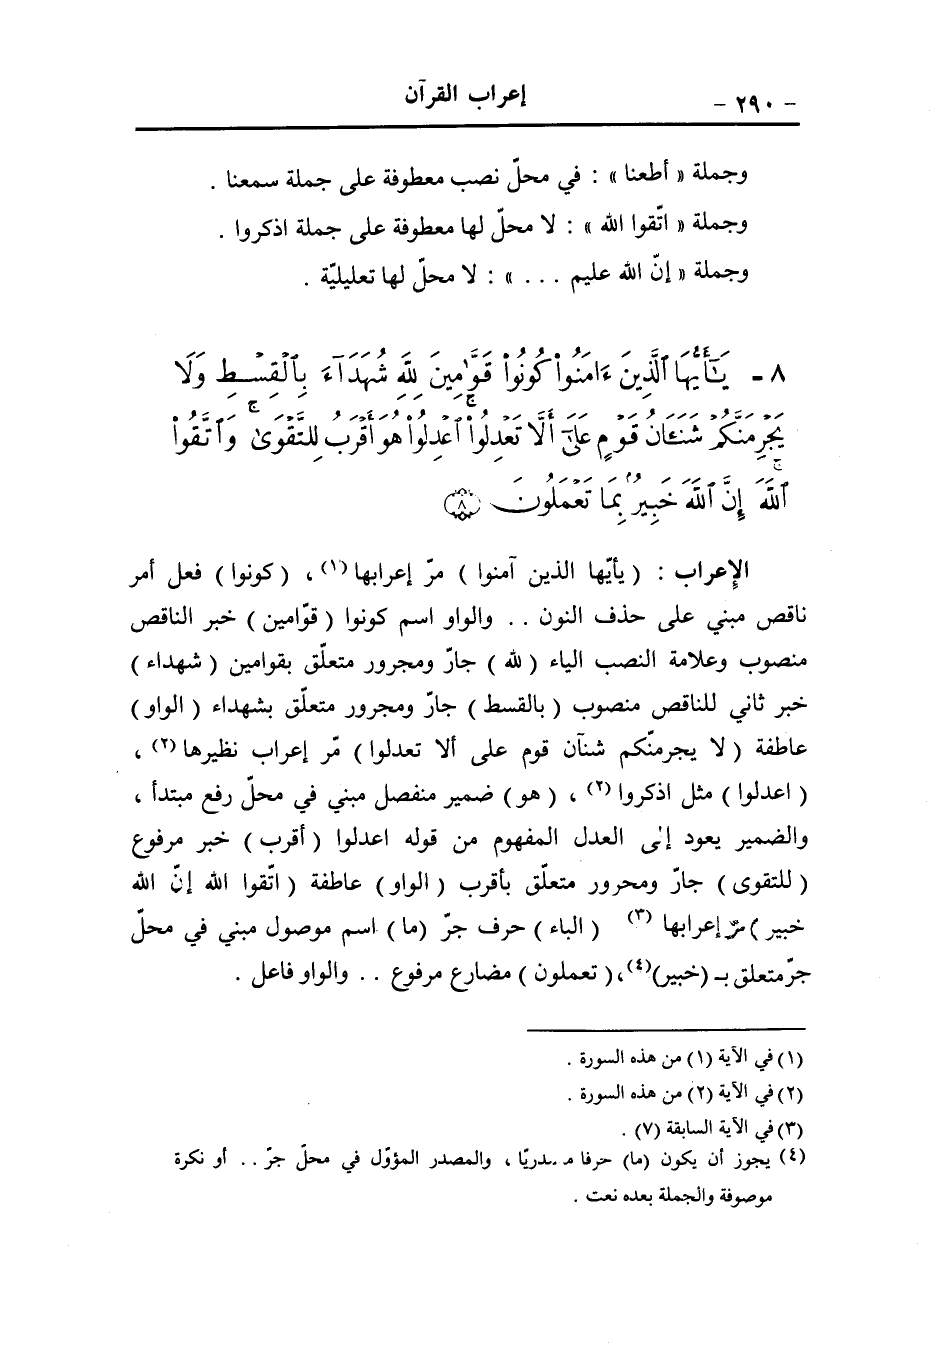 - ٢٩٠ - إعراب القرآن
وجملة « أطعنا » : في محلّ نصب معطوفة على جملة سمعنا .
وجملة « اتّقوا الله » : لا محلّ لها معطوفة على جملة اذكروا .
وجملة « إنّ الله عليم . . . » : لا محلّ لها تعليليّة .
٨ - يَٰٓأَيُّهَا ٱلَّذِينَ ءَامَنُوا۟ كُونُوا۟ قَوَّٰمِينَ لِلَّهِ شُهَدَآءَ بِٱلْقِسْطِ وَلَا
يَجْرِمَنَّكُمْ شَنَـَٔانُ قَوْمٍ عَلَىٰٓ أَلَّا تَعْدِلُوا۟ ۚ ٱعْدِلُوا۟ هُوَ أَقْرَبُ لِلتَّقْوَىٰ ۚ وَٱتَّقُوا۟
ٱللَّهَ ۚ إِنَّ ٱللَّهَ خَبِيرٌۢ بِمَا تَعْمَلُونَ ٨
الإعراب : ( يأيّها الذين آمنوا ) مرّ إعرابها (١) ، ( كونوا ) فعل أمر
ناقص مبني على حذف النون . . والواو اسم كونوا ( قوّامين ) خبر الناقص
منصوب وعلامة النصب الياء ( لله ) جارّ ومجرور متعلّق بقوامين ( شهداء )
خبر ثاني للناقص منصوب ( بالقسط ) جارّ ومجرور متعلّق بشهداء ( الواو )
عاطفة ( لا يجرمنّكم شنآن قوم على ألا تعدلوا ) مّر إعراب نظيرها (٢) ،
( اعدلوا ) مثل اذكروا (٢) ، ( هو ) ضمير منفصل مبني في محلّ رفع مبتدأ ،
والضمير يعود إلى العدل المفهوم من قوله اعدلوا ( أقرب ) خبر مرفوع
( للتقوى ) جارّ ومحرور متعلّق بأقرب ( الواو ) عاطفة ( اتّقوا الله إنّ الله
خبير ) مرّ إعرابها (٣) ( الباء ) حرف جرّ (ما ) اسم موصول مبني في محلّ
جرّ متعلق بـ (خبير)(٤)، ( تعملون ) مضارع مرفوع . . والواو فاعل .
(١) في الآية (١) من هذه السورة .
(٢) في الآية (٢) من هذه السورة .
(٣) في الآية السابقة (٧) .
(٤) يجوز أن يكون (ما) حرفا مصدريّا ، والمصدر المؤوّل في محلّ جرّ . . أو نكرة
موصوفة والجملة بعده نعت .